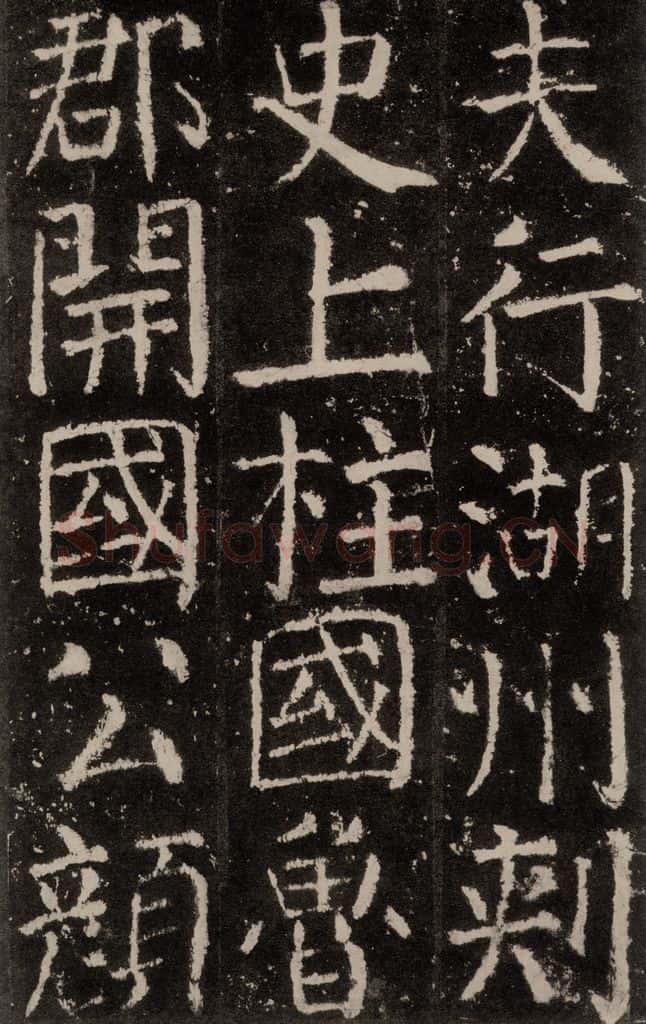 夫行湖州刺
史上柱國魯
郡開國公顏
Shufawang.CN